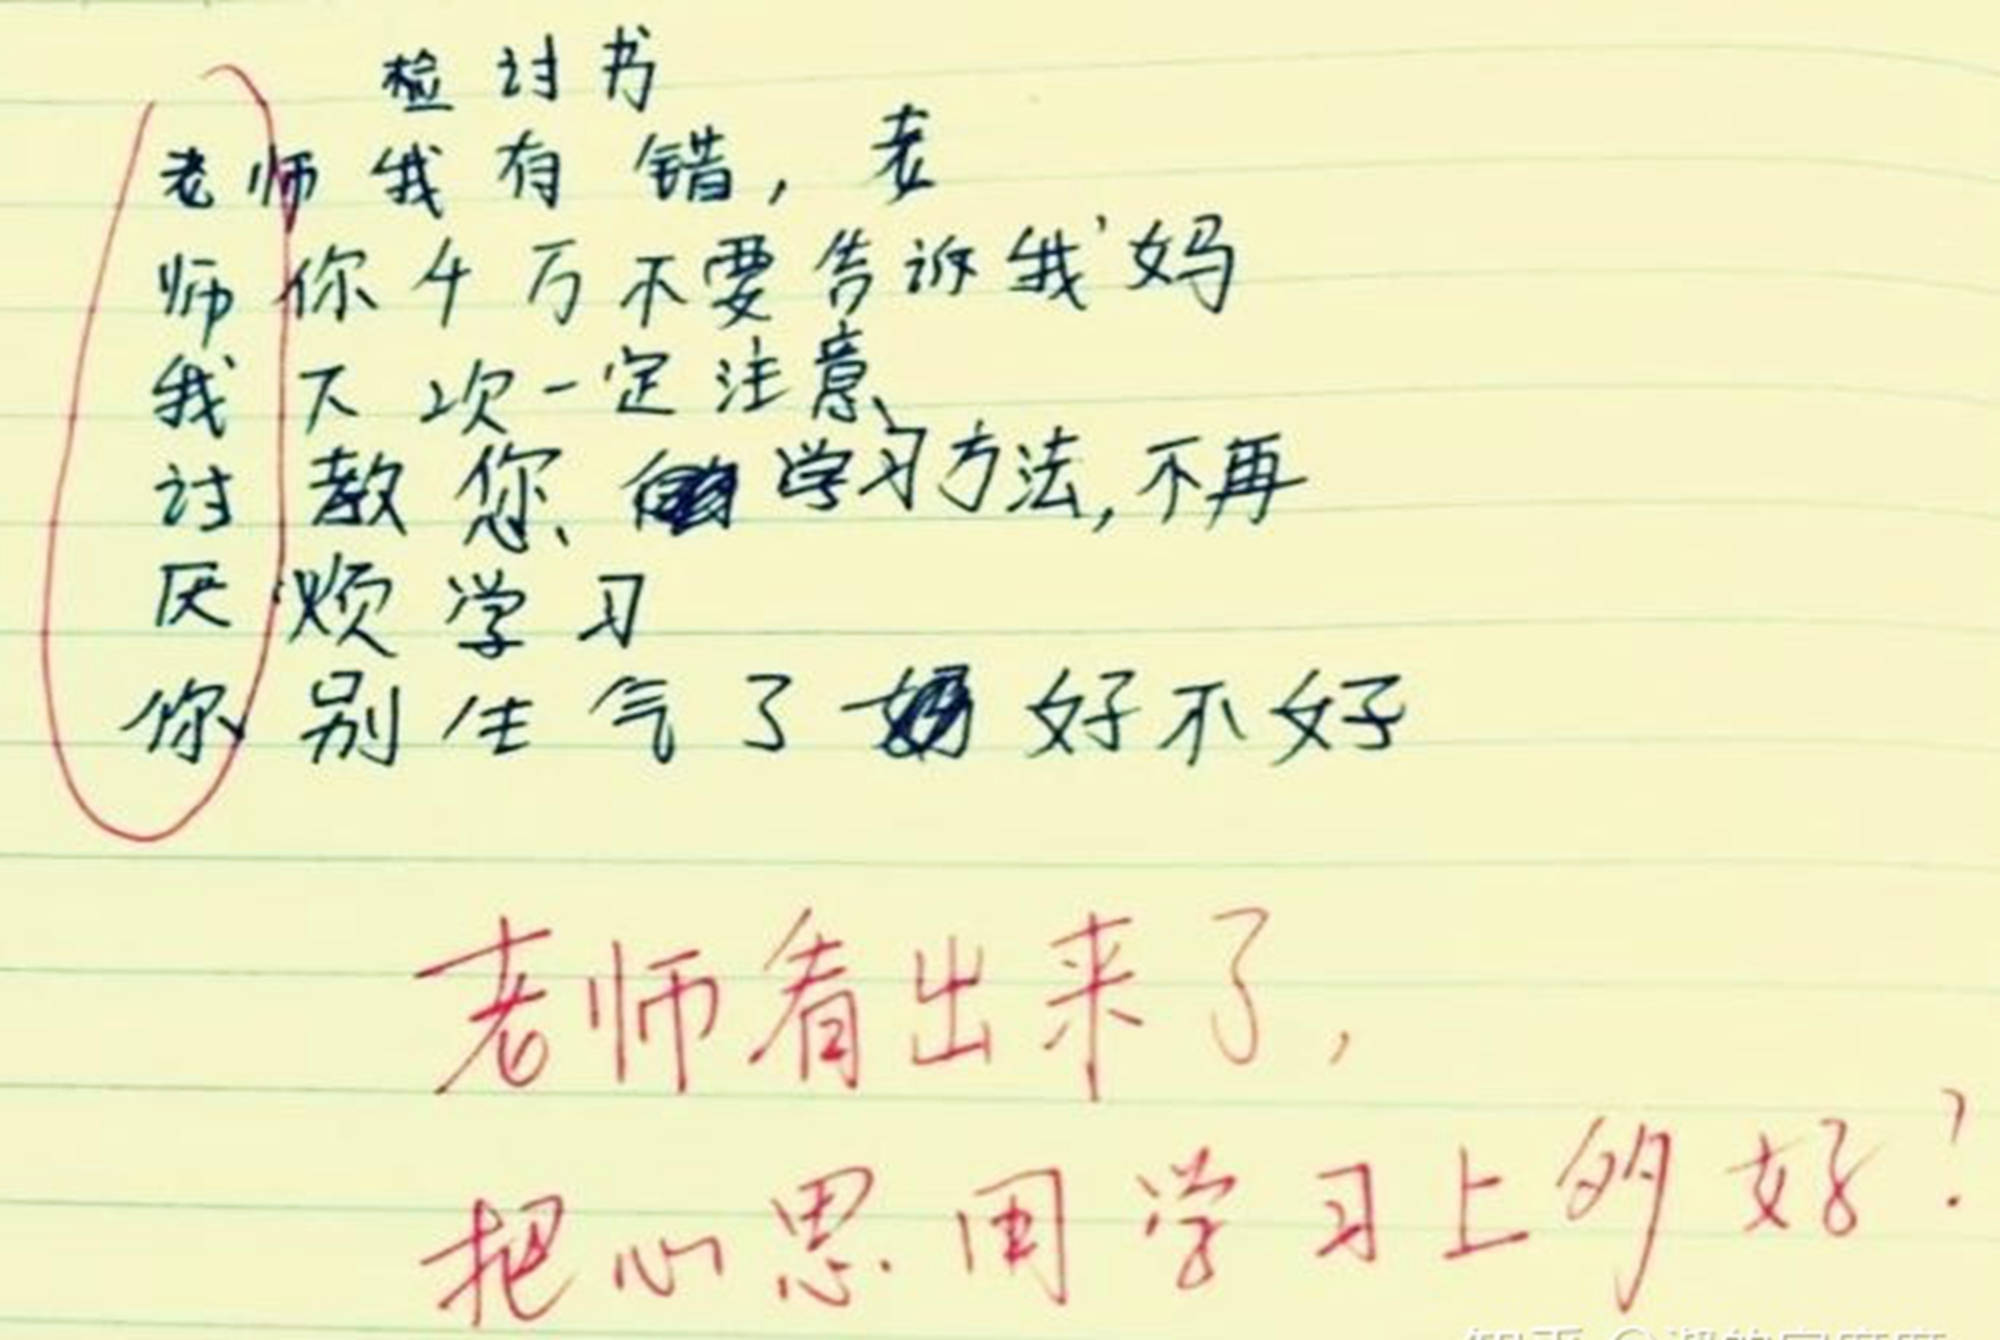 检讨书
老师我有错，老
师你千万不要告诉我妈
我下次一定注意、
讨教您、学习方法，不再
厌烦学习
你别生气了好不好
老师看出来了，
把心思用学习上多好？